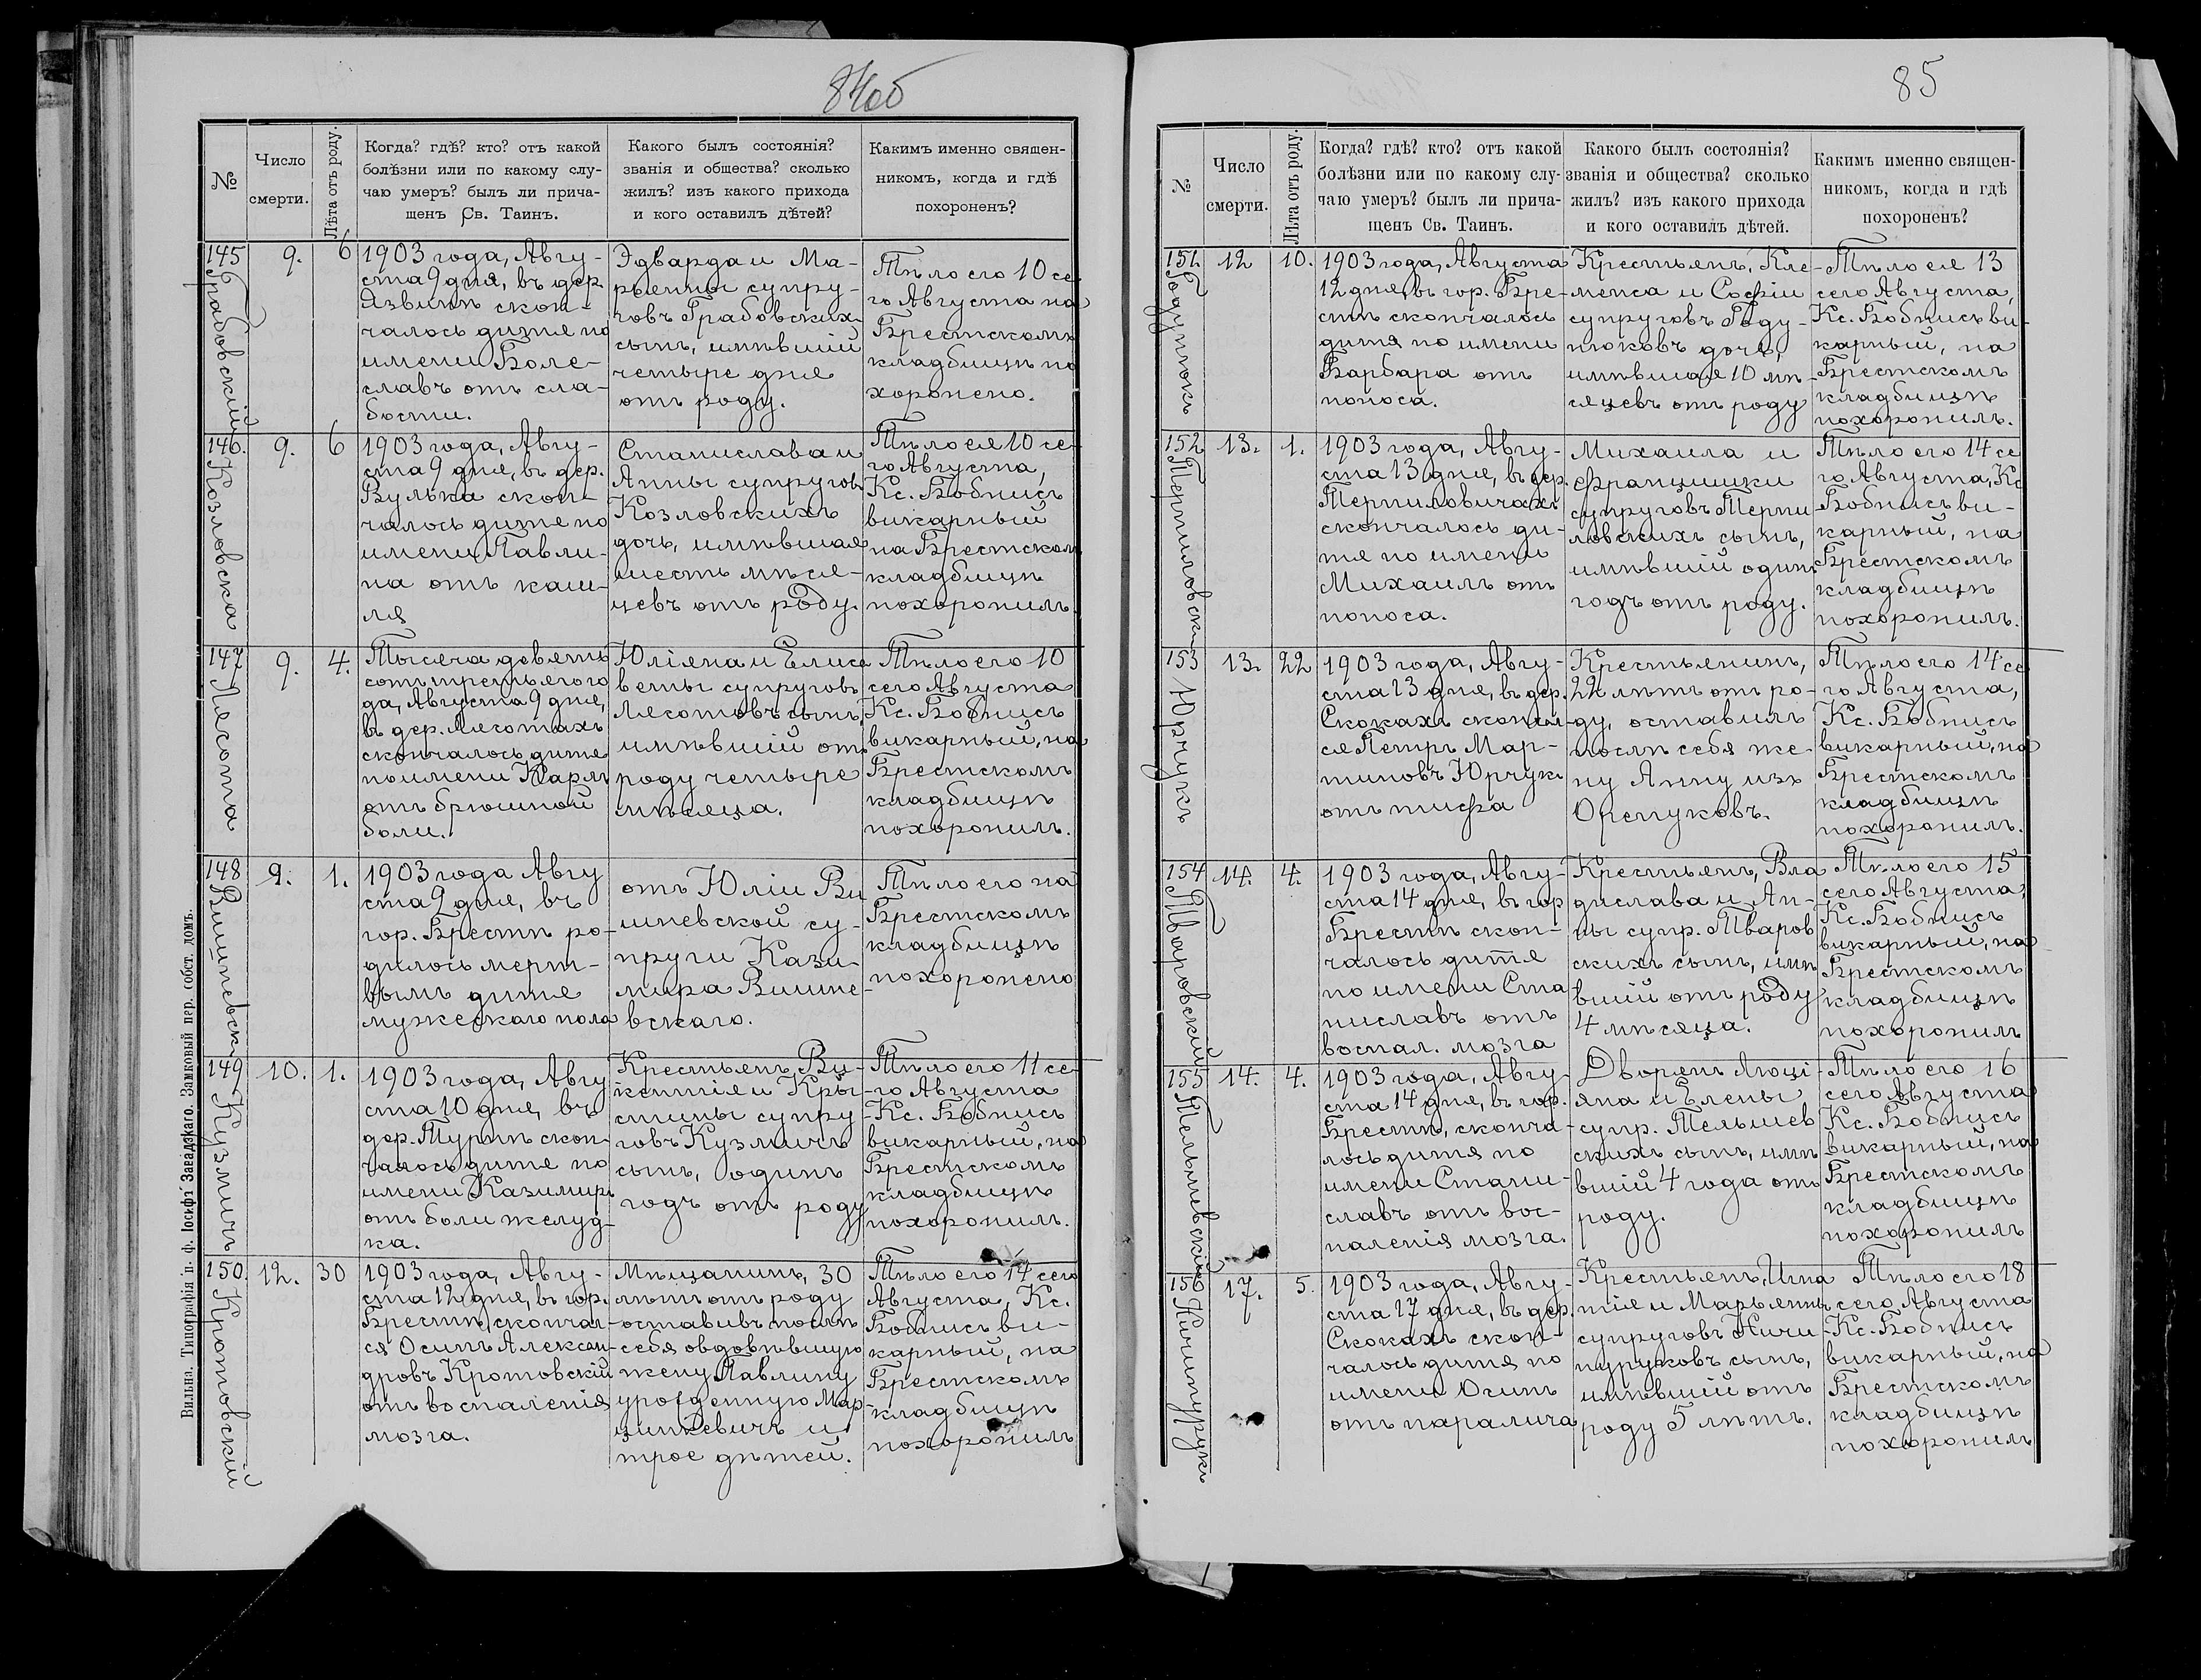 84об
№
Число
смерти.
Лѣта отъ роду.
Когда? гдѣ? кто? отъ какой
болѣзни или по какому слу-
чаю умеръ? былъ ли прича-
щенъ Св. Таинъ.
Какого былъ состоянія?
званія и общества? сколько
жилъ? изъ какого прихода
и кого оставилъ дѣтей?
Какимъ именно священ-
никомъ, когда и гдѣ
похороненъ?
145
Грабовскій
9.
6
1903 года, Авгу-
ста 9 дня, въ дер.
Язвинѣ скон-
чалось дитя по
имени Боле-
славъ отъ сла-
бости.
Эдварда и Ма-
рьянны супру-
говъ Грабовскихъ
сынъ, имѣвшій
четыре дня
отъ роду.
Тѣло его 10 се-
го Августа на
Брестскомъ
кладбищѣ по
хоронено.
146.
Козловска
9.
6
1903 года, Авгу-
ста 9 дня, въ дер.
Вулька скон-
чалось дитя по
имени Павли-
на отъ каш-
ля
Станислава и
Анны супруговъ
Козловскихъ
дочь, имѣвшая
шесть мѣся-
цевъ отъ роду.
Тѣло ея 10 се-
го Августа,
Кс. Бобнисъ
викарный
на Брестскомъ
кладбищѣ
похоронилъ.
147
Лясота
9.
4.
Тысяча девять
сотъ третьяго го
да, Августа 9 дня,
въ дер. Лясотахъ
скончалось дитя
по имени Карлъ
отъ брюшной
боли.
Юліяна и Елиса
веты супруговъ
Лясотовъ сынъ,
имѣвшій отъ
роду четыре
мѣсяца.
Тѣло его 10
сего Августа
Кс. Бобнисъ
викарный, на
Брестскомъ
кладбищѣ
похоронилъ.
148
Вишневскій
9.
1.
1903 года Авгу
ста 9 дня, въ
гор. Брестѣ ро-
дилось мерт-
вымъ дитя
мужескаго пола
отъ Юліи Ви
шневской су-
пруги Кази-
мира Вишне-
вскаго.
Тѣло его на
Брестскомъ
кладбищѣ
похоронено
149
Кузмичъ
10.
1.
1903 года, Авгу
ста 10 дня, въ
дер. Турнѣ скон-
чалось дитя по
имени Казимиръ
отъ боли желуд-
ка.
Крестьянъ, Ви-
кентія и Кры
стины супру
говъ Кузмичъ
сынъ, одинъ
годъ отъ роду
Тѣло его 11 се-
го Августа
Кс. Бобнисъ
викарный, на
Брестскомъ
кладбищѣ
похоронилъ.
150.
Кротовскій
12.
30
1903 года, Авгу-
ста 12 дня, въ гор.
Брестѣ, скончал-
ся Осипъ Алексан-
дровъ Кротовскій
отъ воспаленія
мозга.
Мѣщанинъ, 30
лѣтъ отъ роду
оставивъ послѣ
себя овдовѣвшую
жену Павлину
урожденную Мар
цинкевичъ и
трое дѣтей.
Тѣло его 14 сего
Августа, Кс.
Бобнисъ ви-
карный, на
Брестскомъ
кладбищѣ
похоронилъ
Вильна. Типографія п. ф. Іосифъ Завадзкаго. Замковый пер. собст. домъ.
85
№
Число
смерти.
Лѣта отъ роду.
Когда? гдѣ? кто? отъ какой
болѣзни или по какому слу-
чаю умеръ? былъ ли прича-
щенъ Св. Таинъ.
Какого былъ состоянія?
званія и общества? сколько
жилъ? изъ какого прихода
и кого оставилъ дѣтей.
Какимъ именно священ-
никомъ, когда и гдѣ
похороненъ?
151.
Годунюкъ
12
10.
1903 года, Августа
12 дня, въ гор. Бре-
стѣ скончалось
дитя по имени
Барбара отъ
поноса.
Крестьянъ, Кле-
менса и Софіи
супруговъ Году-
нюковъ дочь,
имѣвшая 10 мѣ-
сяцевъ отъ роду
Тѣло ея 13
сего Августа,
Кс. Бобнисъ ви-
карный, на
Брестскомъ
кладбищѣ
похоронилъ.
152
Терпиловскій
13.
1.
1903 года, Авгу-
ста 13 дня, въ дер.
Терпиловичахъ
скончалось ди-
тя по имени
Михаилъ отъ
поноса.
Михаила и
Францишки
супруговъ Терпи
ловскихъ сынъ,
имѣвшій одинъ
годъ отъ роду.
Тѣло его 14 се
го Августа, Кс
Бобнисъ ви-
карный, на
Брестскомъ
кладбищѣ
похоронилъ.
153
Юрчукъ
13.
22
1903 года, Авгу-
ста 13 дня, въ дер.
Скокахъ скончал-
ся Петръ Мар-
тиновъ Юрчукъ
отъ тифа
Крестьянинъ,
22 лѣтъ отъ ро-
ду, оставилъ
послѣ себя же-
ну Анну изъ
Оренуковъ.
Тѣло его 14 се
го Августа,
Кс. Бобнисъ
викарный, на
Брестскомъ
кладбищѣ
похоронилъ.
154
Тваровскій
14.
4.
1903 года, Авгу-
ста 14 дня, въ гор
Брестѣ скон-
чалось дитя
по имени Ста
ниславъ отъ
воспал. мозга
Крестьянъ, Вла
дислава и Ан-
ны супр. Тваров
скихъ сынъ, имѣ
вшій отъ роду
4 мѣсяца.
Тѣло его 15
сего Августа,
Кс. Бобнисъ
викарный, на
Брестскомъ
кладбищѣ
похоронилъ
155
Тельшевскій
14.
4.
1903 года, Авгу-
ста 14 дня, въ гор.
Брестѣ, сконча-
лось дитя по
имени Стани-
славъ отъ вос-
паленія мозга.
Дворянъ Люці-
яна и Елены
супр. Тельшев
скихъ сынъ, имѣ
вшій 4 года отъ
роду.
Тѣло его 16
сего Августа
Кс. Бобнисъ
викарный, на
Брестскомъ
кладбищѣ
похоронилъ
156
Ничипурукъ
17.
5.
1903 года, Авгу-
ста 17 дня, въ дер.
Скокахъ скон-
чалось дитя по
имени Осипъ
отъ паралича
Крестьянъ, Игна
тія и Марьянны
супруговъ Ничи
пуруковъ сынъ,
имѣвшій отъ
роду 5 лѣтъ.
Тѣло его 18
сего Августа
Кс. Бобнисъ
викарный, на
Брестскомъ
кладбищѣ
похоронилъ